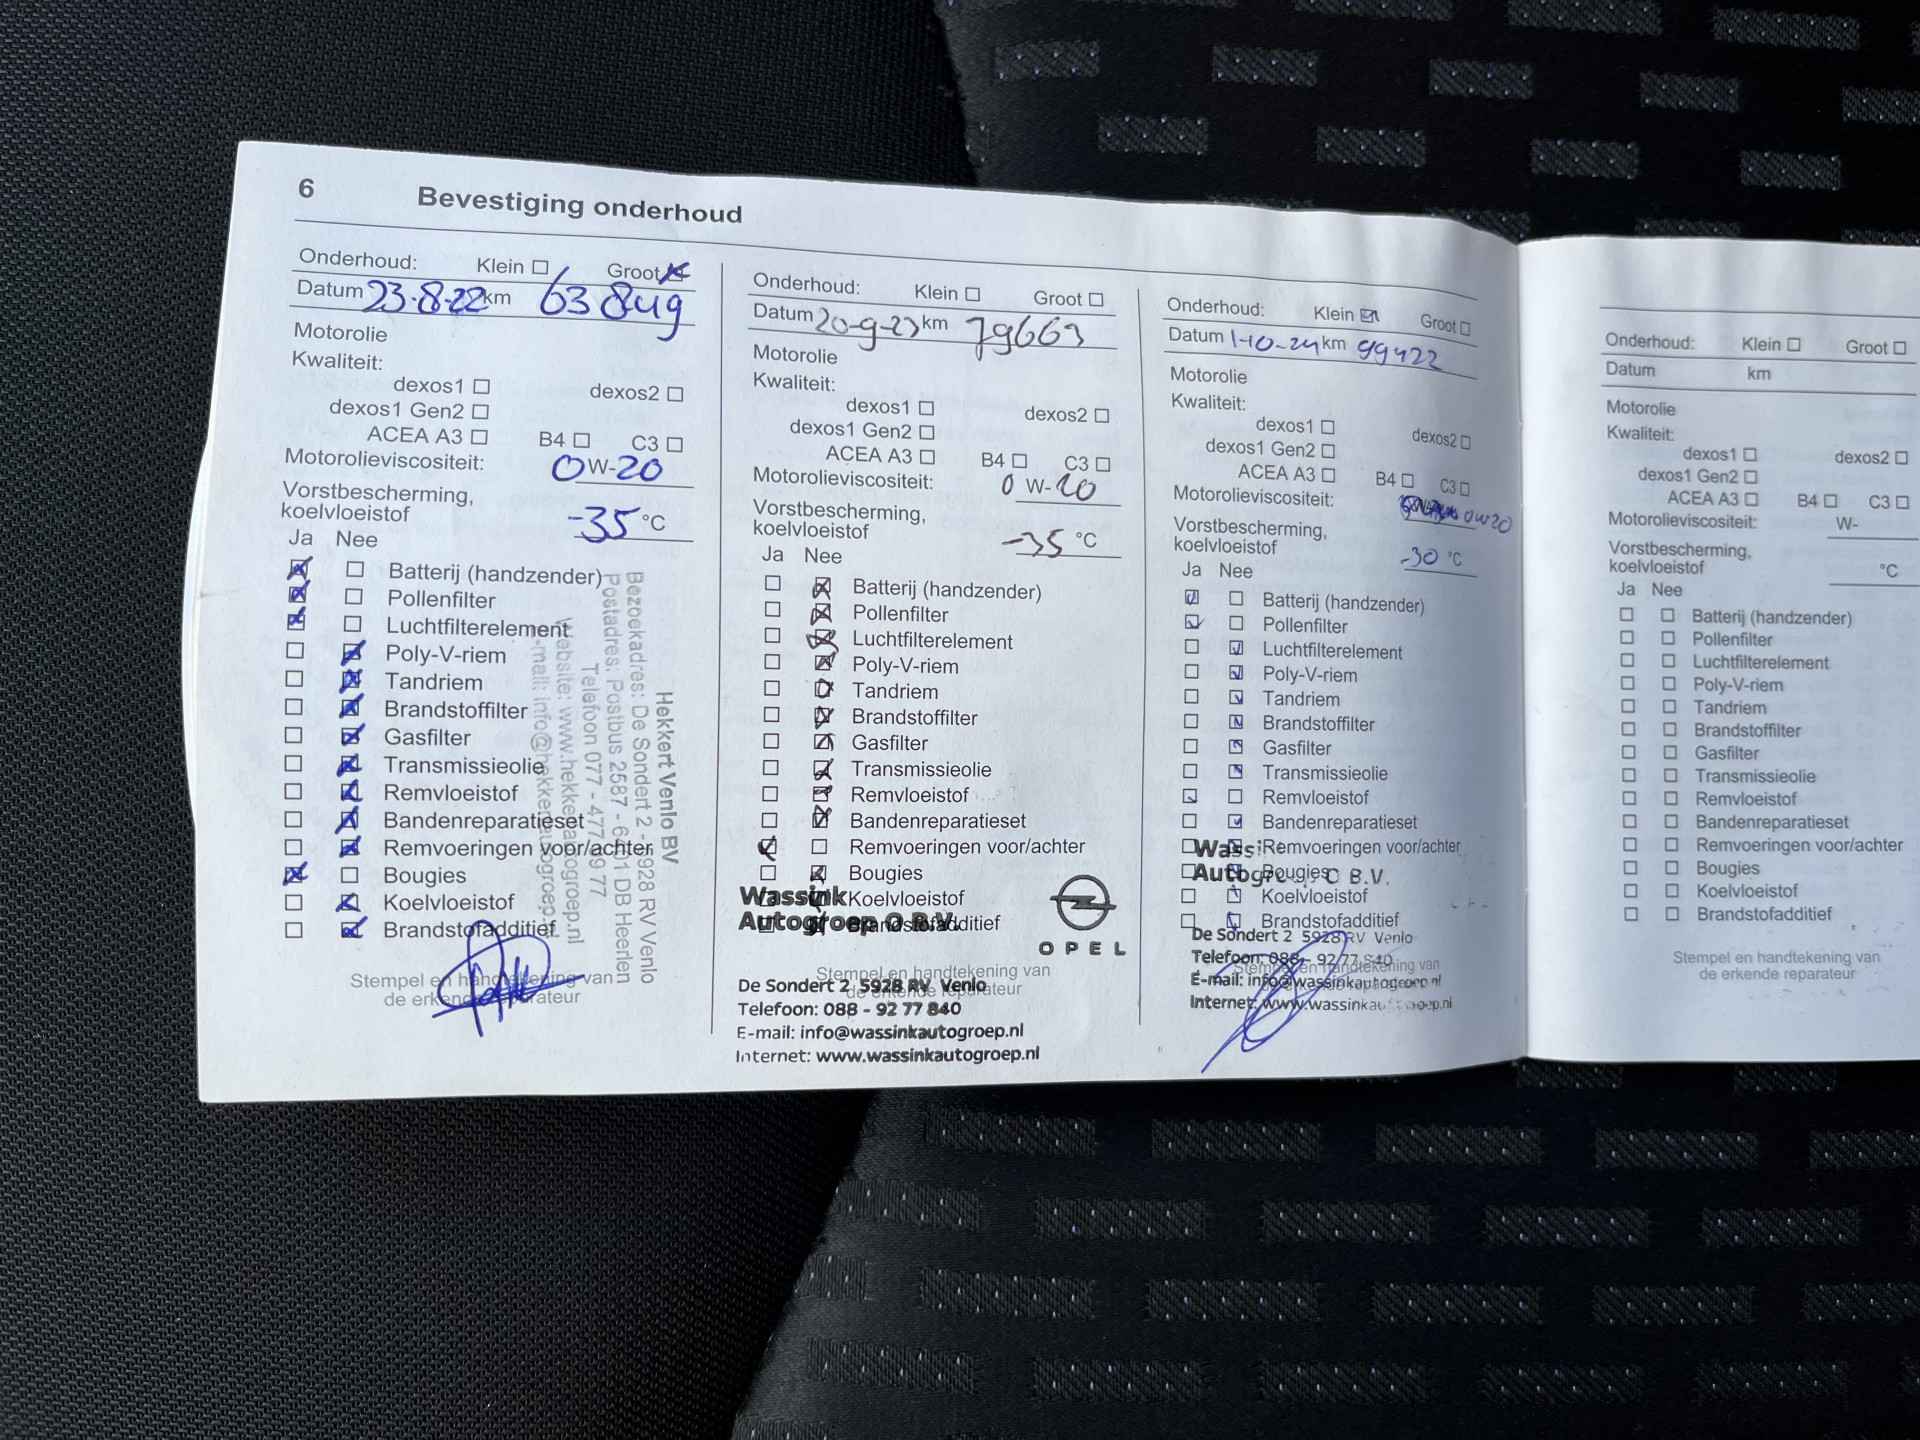 6 Bevestiging onderhoud
Onderhoud: Klein Groot
Datum 23-8-22 km 63849
Motorolie
Kwaliteit:
dexos1 dexos2
dexos1 Gen2
ACEA A3 B4 C3
Motorolieviscositeit: 0 W-20
Vorstbescherming,
koelvloeistof -35 °C
Ja Nee
Batterij (handzender)
Pollenfilter
Luchtfilterelement
Poly-V-riem
Tandriem
Brandstoffilter
Gasfilter
Transmissieolie
Remvloeistof
Bandenreparatieset
Remvoeringen voor/achter
Bougies
Koelvloeistof
Brandstofadditief
Stempel en handtekening van
de erkende reparateur
Hekkert Venlo BV
Bezoekadres: De Sondert 2 - 5928 RV Venlo
Postadres: Postbus 2587 - 6401 DB Heerlen
Telefoon 077 - 477 99 77
Website: www.hekkertautogroep.nl
E-mail: info@hekkertautogroep.nl
Onderhoud: Klein Groot
Datum 20-9-23 km 79663
Motorolie
Kwaliteit:
dexos1 dexos2
dexos1 Gen2
ACEA A3 B4 C3
Motorolieviscositeit: 0 W-20
Vorstbescherming,
koelvloeistof -35 °C
Ja Nee
Batterij (handzender)
Pollenfilter
Luchtfilterelement
Poly-V-riem
Tandriem
Brandstoffilter
Gasfilter
Transmissieolie
Remvloeistof
Bandenreparatieset
Remvoeringen voor/achter
Bougies
Koelvloeistof
Brandstofadditief
Stempel en handtekening van
de erkende reparateur
Wassink
Autogroep O B.V.
OPEL
De Sondert 2 5928 RV Venlo
Telefoon: 088 - 92 77 840
E-mail: info@wassinkautogroep.nl
Internet: www.wassinkautogroep.nl
Onderhoud: Klein Groot
Datum 1-10-24 km 99422
Motorolie
Kwaliteit:
dexos1 dexos2
dexos1 Gen2
ACEA A3 B4 C3
Motorolieviscositeit: 0W20
Vorstbescherming,
koelvloeistof -30 °C
Ja Nee
Batterij (handzender)
Pollenfilter
Luchtfilterelement
Poly-V-riem
Tandriem
Brandstoffilter
Gasfilter
Transmissieolie
Remvloeistof
Bandenreparatieset
Remvoeringen voor/achter
Bougies
Koelvloeistof
Brandstofadditief
Stempel en handtekening van
B.V.
De Sondert 2 5928 RV Venlo
Telefoon: 088 - 92 77 840
E-mail: info@wassinkautogroep.nl
Internet: www.wassinkautogroep.nl
Onderhoud: Klein Groot
Datum km
Motorolie
Kwaliteit:
dexos1 dexos2
dexos1 Gen2
ACEA A3 B4 C3
Motorolieviscositeit: W-
Vorstbescherming,
koelvloeistof °C
Ja Nee
Batterij (handzender)
Pollenfilter
Luchtfilterelement
Poly-V-riem
Tandriem
Brandstoffilter
Gasfilter
Transmissieolie
Remvloeistof
Bandenreparatieset
Remvoeringen voor/achter
Bougies
Koelvloeistof
Brandstofadditief
Stempel en handtekening van
de erkende reparateur